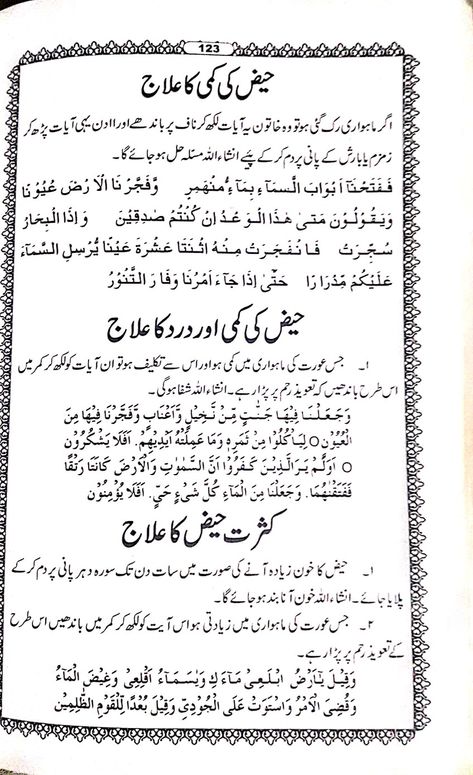 123
حیض کی کمی کا علاج
اگر ماہواری رک گئی ہو تو وہ خاتون یہ آیات لکھ کر ناف پر باندھے اور ۱۱ دن یہی آیات پڑھ کر
زمزم یا بارش کے پانی پر دم کر کے پیئے انشاءاللہ مسئلہ حل ہو جائے گا۔
فَفَتَحْنَآ اَبْوَابَ السَّمَآءِ بِمَآءٍ مُّنْهَمِرٍ وَّفَجَّرْنَا الْاَرْضَ عُيُوْنًا
وَيَقُوْلُوْنَ مَتٰى هٰذَا الْوَعْدُ اِنْ كُنْتُمْ صٰدِقِيْنَ وَاِذَا الْبِحَارُ
سُجِّرَتْ فَانْفَجَرَتْ مِنْهُ اثْنَتَا عَشْرَةَ عَيْنًا يُّرْسِلِ السَّمَآءَ
عَلَيْكُمْ مِّدْرَارًا حَتّٰى اِذَا جَآءَ اَمْرُنَا وَفَارَ التَّنُّوْرُ
حیض کی کمی اور درد کا علاج
۱۔ جس عورت کی ماہواری میں کمی ہو اور اس سے تکلیف ہو تو ان آیات کو لکھ کر کمر میں
اس طرح باندھیں کہ تعویذ رحم پر پڑا رہے۔ انشاءاللہ شفا ہو گی۔
وَجَعَلْنَا فِيْهَا جَنّٰتٍ مِّنْ نَّخِيْلٍ وَّاَعْنَابٍ وَّفَجَّرْنَا فِيْهَا مِنَ
الْعُيُوْنِ ○ لِيَاْكُلُوْا مِنْ ثَمَرِهٖ وَمَا عَمِلَتْهُ اَيْدِيْهِمْ. اَفَلَا يَشْكُرُوْنَ
○ اَوَلَمْ يَرَ الَّذِيْنَ كَفَرُوْا اَنَّ السَّمٰوٰتِ وَالْاَرْضَ كَانَتَا رَتْقًا
فَفَتَقْنٰهُمَا. وَجَعَلْنَا مِنَ الْمَآءِ كُلَّ شَىْءٍ حَىٍّ. اَفَلَا يُؤْمِنُوْنَ
کثرت حیض کا علاج
۱۔ حیض کا خون زیادہ آنے کی صورت میں سات دن تک سورہ دہر پانی پر دم کر کے
پلایا جائے۔ انشاءاللہ خون آنا بند ہو جائے گا۔
۲۔ جس عورت کی ماہواری میں زیادتی ہو اس آیت کو لکھ کر کمر میں باندھیں اس طرح
کے تعویذ رحم پر پڑا رہے۔
وَقِيْلَ يٰٓاَرْضُ ابْلَعِىْ مَآءَكِ وَيٰسَمَآءُ اَقْلِعِىْ وَغِيْضَ الْمَآءُ
وَقُضِىَ الْاَمْرُ وَاسْتَوَتْ عَلَى الْجُوْدِىِّ وَقِيْلَ بُعْدًا لِّلْقَوْمِ الظّٰلِمِيْنَ